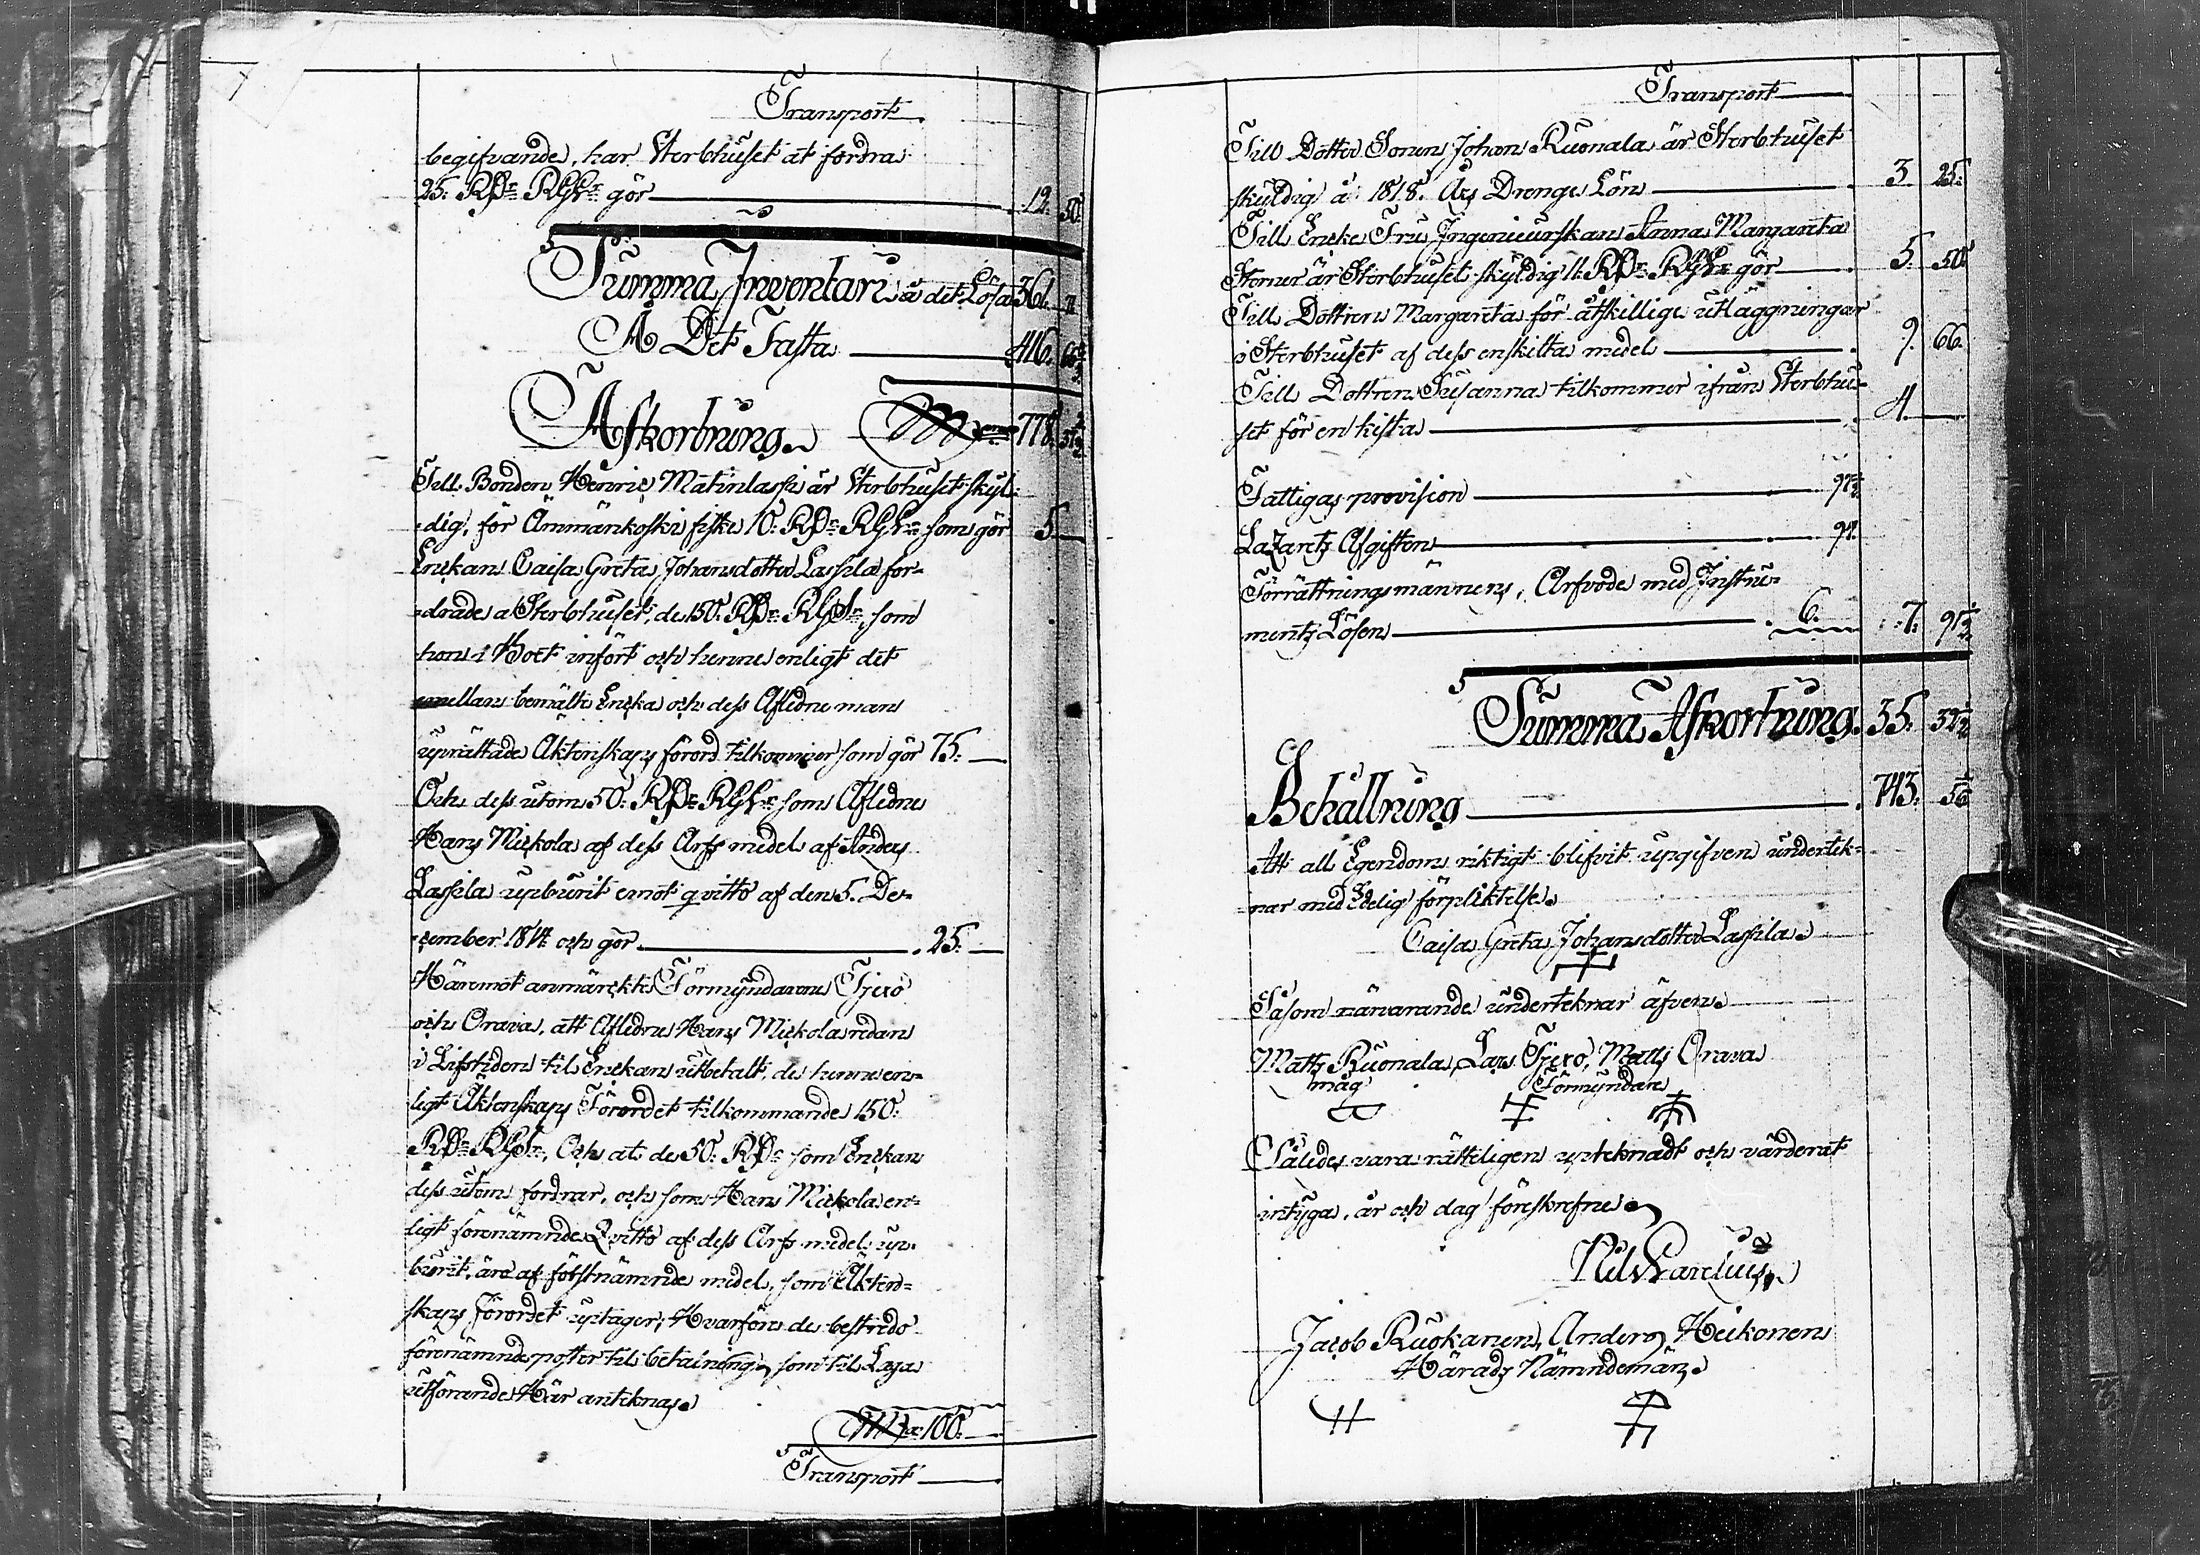 Transport
begifvande, har Sterbhuset at fordra
25. Rdr RGSr gör 12. 50.
Summa Inventarii å det Lösa 361. 71
A Det Fasta 416.
Afkortning 778.
Till Bonden Henric Matinlassi är Sterbhuset skyl-
dig, för Ämmänkoski fiske 10: Rdr RGSr som gör 5.
Enckan Caisa Greta Johansdotter Lassila for-
drade a Sterbhuset, de 150: Rdr RGSr, som
hon i Boet infört och henne enligt det
mellan bemälte Encka och dess Aflidne man
uprättade Äktenskaps förord tilkommer som gör 75:
Och dess utom 50: Rdr RGSr som Aflidne
Hans Mickola af dess Arfs medel af Anders
Lassila upburit emot qvitto af den 5. De-
cember 1814 och gör 25:
Häremot anmärckte Förmyndarene Tjero
och Orava, att Aflidne Hans Mickola redan
i Lifstiden til Enckan utbetalt, de henne en-
ligt Äktenskaps Förordet tilkommande 150:
Rdr RGSr, Och at de 50: Rdr som Enckan
dess utom fordrar, och som Hans Mickola en-
ligt förenämnde Qvitto af dess Arfs medel up-
burit, äro af förstnämnde medel, som Äkten-
skaps Förordet uptager; Hvarföre de bestrido
förenämnde poster til betalning, som til Laga
utförande Här anteknas.
100:
Transport
Transport
Till Dotter Sonen Johan Ruonala är Sterbhuset
skyldig å 1818. Års Drenge Lön 3. 25:
Till Encke Fru Ingenieurskan Anna Margareta
Sterner är Sterbhuset skyldig 11: Rdr RGSr gör 5. 50.
Till Dottren Margareta för åtskillige utläggningar
i Sterbhuset af dess enskilta medel 9. 66.
Till Dottren Susanna tilkommer ifrån Sterbhu-
set för en kista 4.
Fattigas provision 97½
Lazaretz Afgiften 94.
Förrättningsmännens, Arfvode med Instru-
mentz Lösen 6. 7. 91½
Summa Afkortning. 35. 32½
Behållning 743: 5
Att all Egendom riktigt blifvit upgifven undertek-
nar med Edelig förpliktelse.
Caisa Greta Johansdotter Lassila.
Såsom närvarande underteknar äfven.
Matts Ruonala, Lars Tjero, Matts Orava
måg Förmyndare
Således vara rätteligen upteknadt och värderat
intyga, år och dag föreskrefne
Nils Carelius
Jacob Ruokanen, Anders Heikonen
Härads Nämndemän.